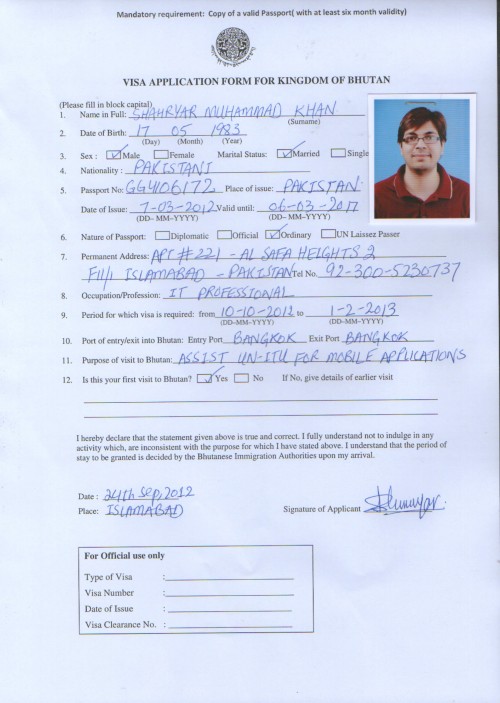 Mandatory requirement: Copy of a valid Passport( with at least six month validity)
VISA APPLICATION FORM FOR KINGDOM OF BHUTAN
(Please fill in block capital)
1. Name in Full: SHAHRYAR MUHAMMAD KHAN
(Surname)
2. Date of Birth: 17 05 1983
(Day) (Month) (Year)
3. Sex : Male Female Marital Status: Married Single
4. Nationality : PAKISTANI
5. Passport No: GG4106172 Place of issue: PAKISTAN
Date of Issue: 7-03-2012 Valid until: 06-03-2017
(DD– MM–YYYY) (DD– MM–YYYY)
6. Nature of Passport: Diplomatic Official Ordinary UN Laissez Passer
7. Permanent Address: APT #221 - AL SAFA HEIGHTS 2
F11/1 ISLAMABAD - PAKISTAN Tel No. 92-300-5230737
8. Occupation/Profession: IT PROFESSIONAL
9. Period for which visa is required: from 10-10-2012 to 1-2-2013
(DD–MM–YYYY) (DD–MM–YYYY)
10. Port of entry/exit into Bhutan: Entry Port BANGKOK Exit Port BANGKOK
11. Purpose of visit to Bhutan: ASSIST UN-ITU FOR MOBILE APPLICATIONS
12. Is this your first visit to Bhutan? Yes No If No, give details of earlier visit
I hereby declare that the statement given above is true and correct. I fully understand not to indulge in any
activity which, are inconsistent with the purpose for which I have stated above. I understand that the period of
stay to be granted is decided by the Bhutanese Immigration Authorities upon my arrival.
Date : 24th Sep, 2012
Place: ISLAMABAD Signature of Applicant
For Official use only
Type of Visa :
Visa Number :
Date of Issue :
Visa Clearance No. :